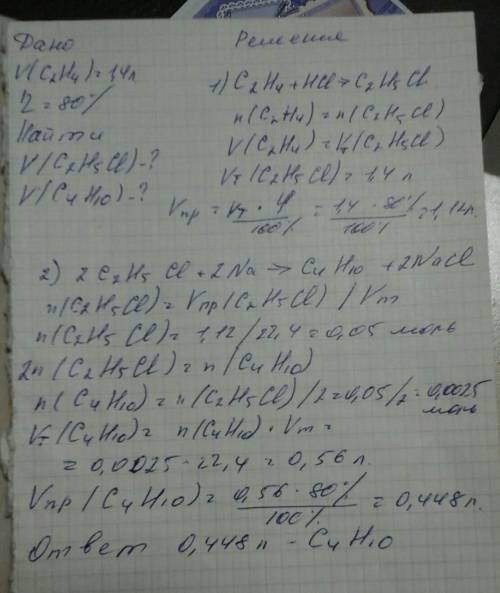 Дано Решение
V(C2H4)=1,4л
η=80% 1) C2H4+HCl→C2H5Cl
Найти n(C2H4)=n(C2H5Cl)
V(C2H5Cl)-? V(C2H4)=Vт(C2H5Cl)
V(C4H10)-? Vт(C2H5Cl)=1,4 л
Vпр = Vт · φ / 100% = 1,4 · 80% / 100% = 1,12л.
2) 2 C2H5Cl + 2Na → C4H10 + 2NaCl
n(C2H5Cl)= Vпр(C2H5Cl) / Vm
n(C2H5Cl)= 1,12/22,4=0,05 моль
2n(C2H5Cl)= n(C4H10)
n(C4H10)= n(C2H5Cl)/2=0,05/2=0,0025 моль
Vт(C4H10)= n(C4H10)·Vm=
= 0,0025·22,4 = 0,56 л.
Vпр(C4H10)= 0,56·80% / 100% = 0,448л.
Ответ 0,448л - C4H10